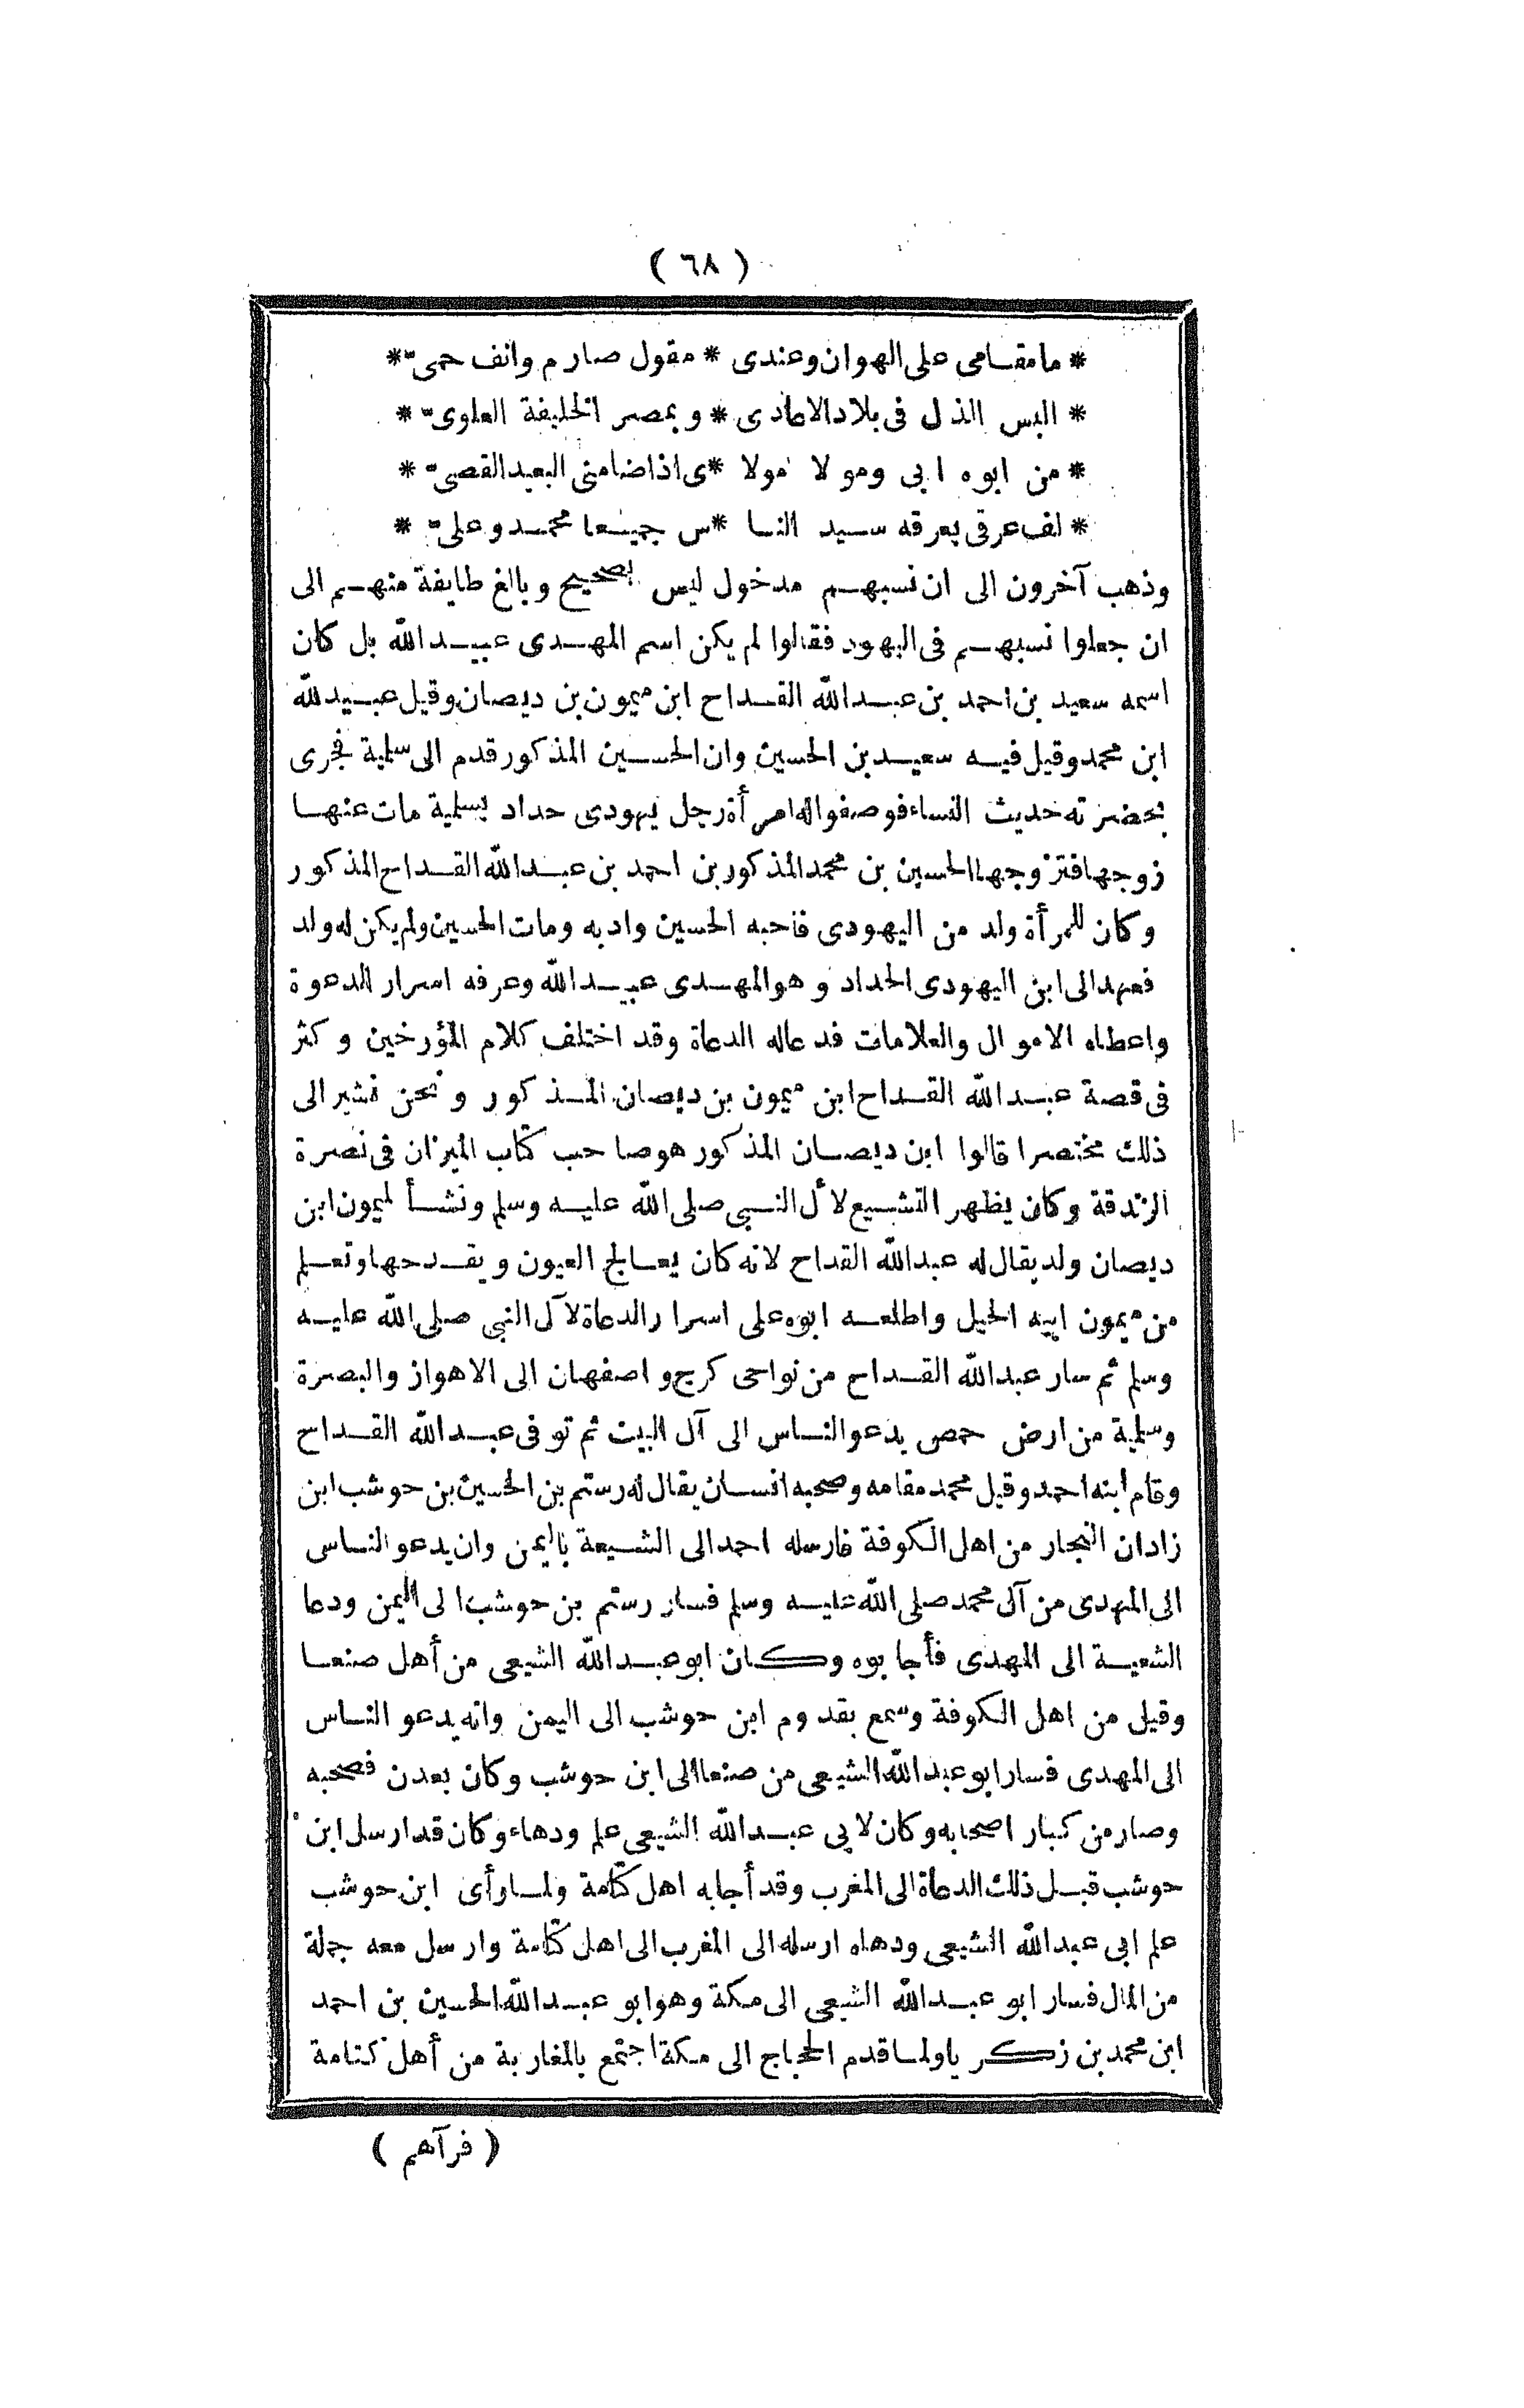 ( ٦٨ )
* ما مقامى على الهوان وعندى * مقول صارم وانف حمىّ *
* البس الذل فى بلاد الاعادى * وبمصر الخليفة العلوىّ *
* من ابوه ابى ومولاه مولا * ى اذا ضامنى البعيد القصىّ *
* لف عرقى بعرقه سيد النا * س جميعا محمد وعلىّ *
وذهب آخرون الى ان نسبهم مدخول ليس بصحيح وبالغ طايفة منهم الى
ان جعلوا نسبهم فى اليهود فقالوا لم يكن اسم المهدى عبيد الله بل كان
اسمه سعيد بن احمد بن عبد الله القداح ابن ميمون بن ديصان وقيل عبيد لله
ابن محمد وقيل فيه سعيد بن الحسين وان الحسين المذكور قدم الى سلمية فجرى
بحضرته حديث النساء فوصفوا له امرأة رجل يهودى حداد بسلمية مات عنها
زوجها فتزوجها الحسين بن محمد المذكور بن احمد بن عبد الله القداح المذكور
وكان للمرأة ولد من اليهودى فاحبه الحسين وادبه ومات الحسين ولم يكن له ولد
فعهد الى ابن اليهودى الحداد وهو المهدى عبيد الله وعرفه اسرار الدعوة
واعطاه الاموال والعلامات فدعا له الدعاة وقد اختلف كلام المؤرخين وكثر
فى قصة عبد الله القداح ابن ميمون بن ديصان المذكور ونحن نشير الى
ذلك مختصرا قالوا ابن ديصان المذكور هو صاحب كتاب الميزان فى نصرة
الزندقة وكان يظهر التشيع لأل النبى صلى الله عليه وسلم ونشأ لميمون ابن
ديصان ولد يقال له عبد الله القداح لانه كان يعالج العيون ويقدحها وتعلم
من ميمون ابيه الحيل واطلعه ابوه على اسرار الدعاة لآل النبى صلى الله عليه
وسلم ثم سار عبد الله القداح من نواحى كرج واصفهان الى الاهواز والبصرة
وسلمية من ارض حمص يدعو الناس الى آل البيت ثم توفى عبد الله القداح
وقام ابنه احمد وقيل محمد مقامه وصحبه انسان يقال له رستم بن الحسين بن حوشب ابن
زادان النجار من اهل الكوفة فارسله احمد الى الشيعة باليمن وان يدعو الناس
الى المهدى من آل محمد صلى الله عليه وسلم فسار رستم بن حوشب الى اليمن ودعا
الشعية الى المهدى فأجابوه وكان ابو عبد الله الشيعى من أهل صنعا
وقيل من اهل الكوفة وسمع بقدوم ابن حوشب الى اليمن وانه يدعو الناس
الى المهدى فسار ابو عبد الله الشيعى من صنعا الى ابن حوشب وكان بعدن فصحبه
وصار من كبار اصحابه وكان لابى عبد الله الشيعى علم ودهاء وكان قد ارسل ابن
حوشب قبل ذلك الدعاة الى المغرب وقد أجابه اهل كتامة ولما رأى ابن حوشب
علم ابى عبد الله الشيعى ودهاه ارسله الى المغرب الى اهل كتامة وارسل معه جملة
من المال فسار ابو عبد الله الشيعى الى مكة وهو ابو عبد الله الحسين بن احمد
ابن محمد بن زكريا ولما قدم الحجاج الى مكة اجتمع بالمغاربة من أهل كتامة
( فرآهم )